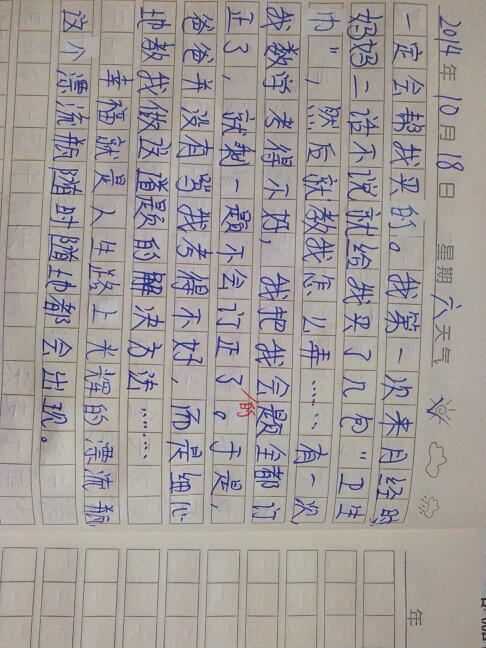 2014年10月18日 星期六天气
一定会帮我买的。我第一次来月经时
妈妈二话不说就给我买了几包"卫生
巾"，然后就教我怎么弄……有一次，
我数学考得不好，我把我会的题全都订
正了，就剩一题不会订正了。于是，
爸爸并没有骂我考得不好，而是细心
地教我做这道题的解决方法……
幸福就是人生路上光辉的漂流瓶
这个漂流瓶随时随地都会出现。
年